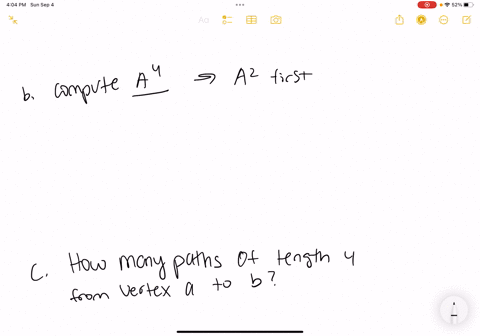 4:04 PM Sun Sep 4
52%
Aa
b. compute A⁴ ⇒ A² first
c. How many paths of length 4
from vertex a to b?